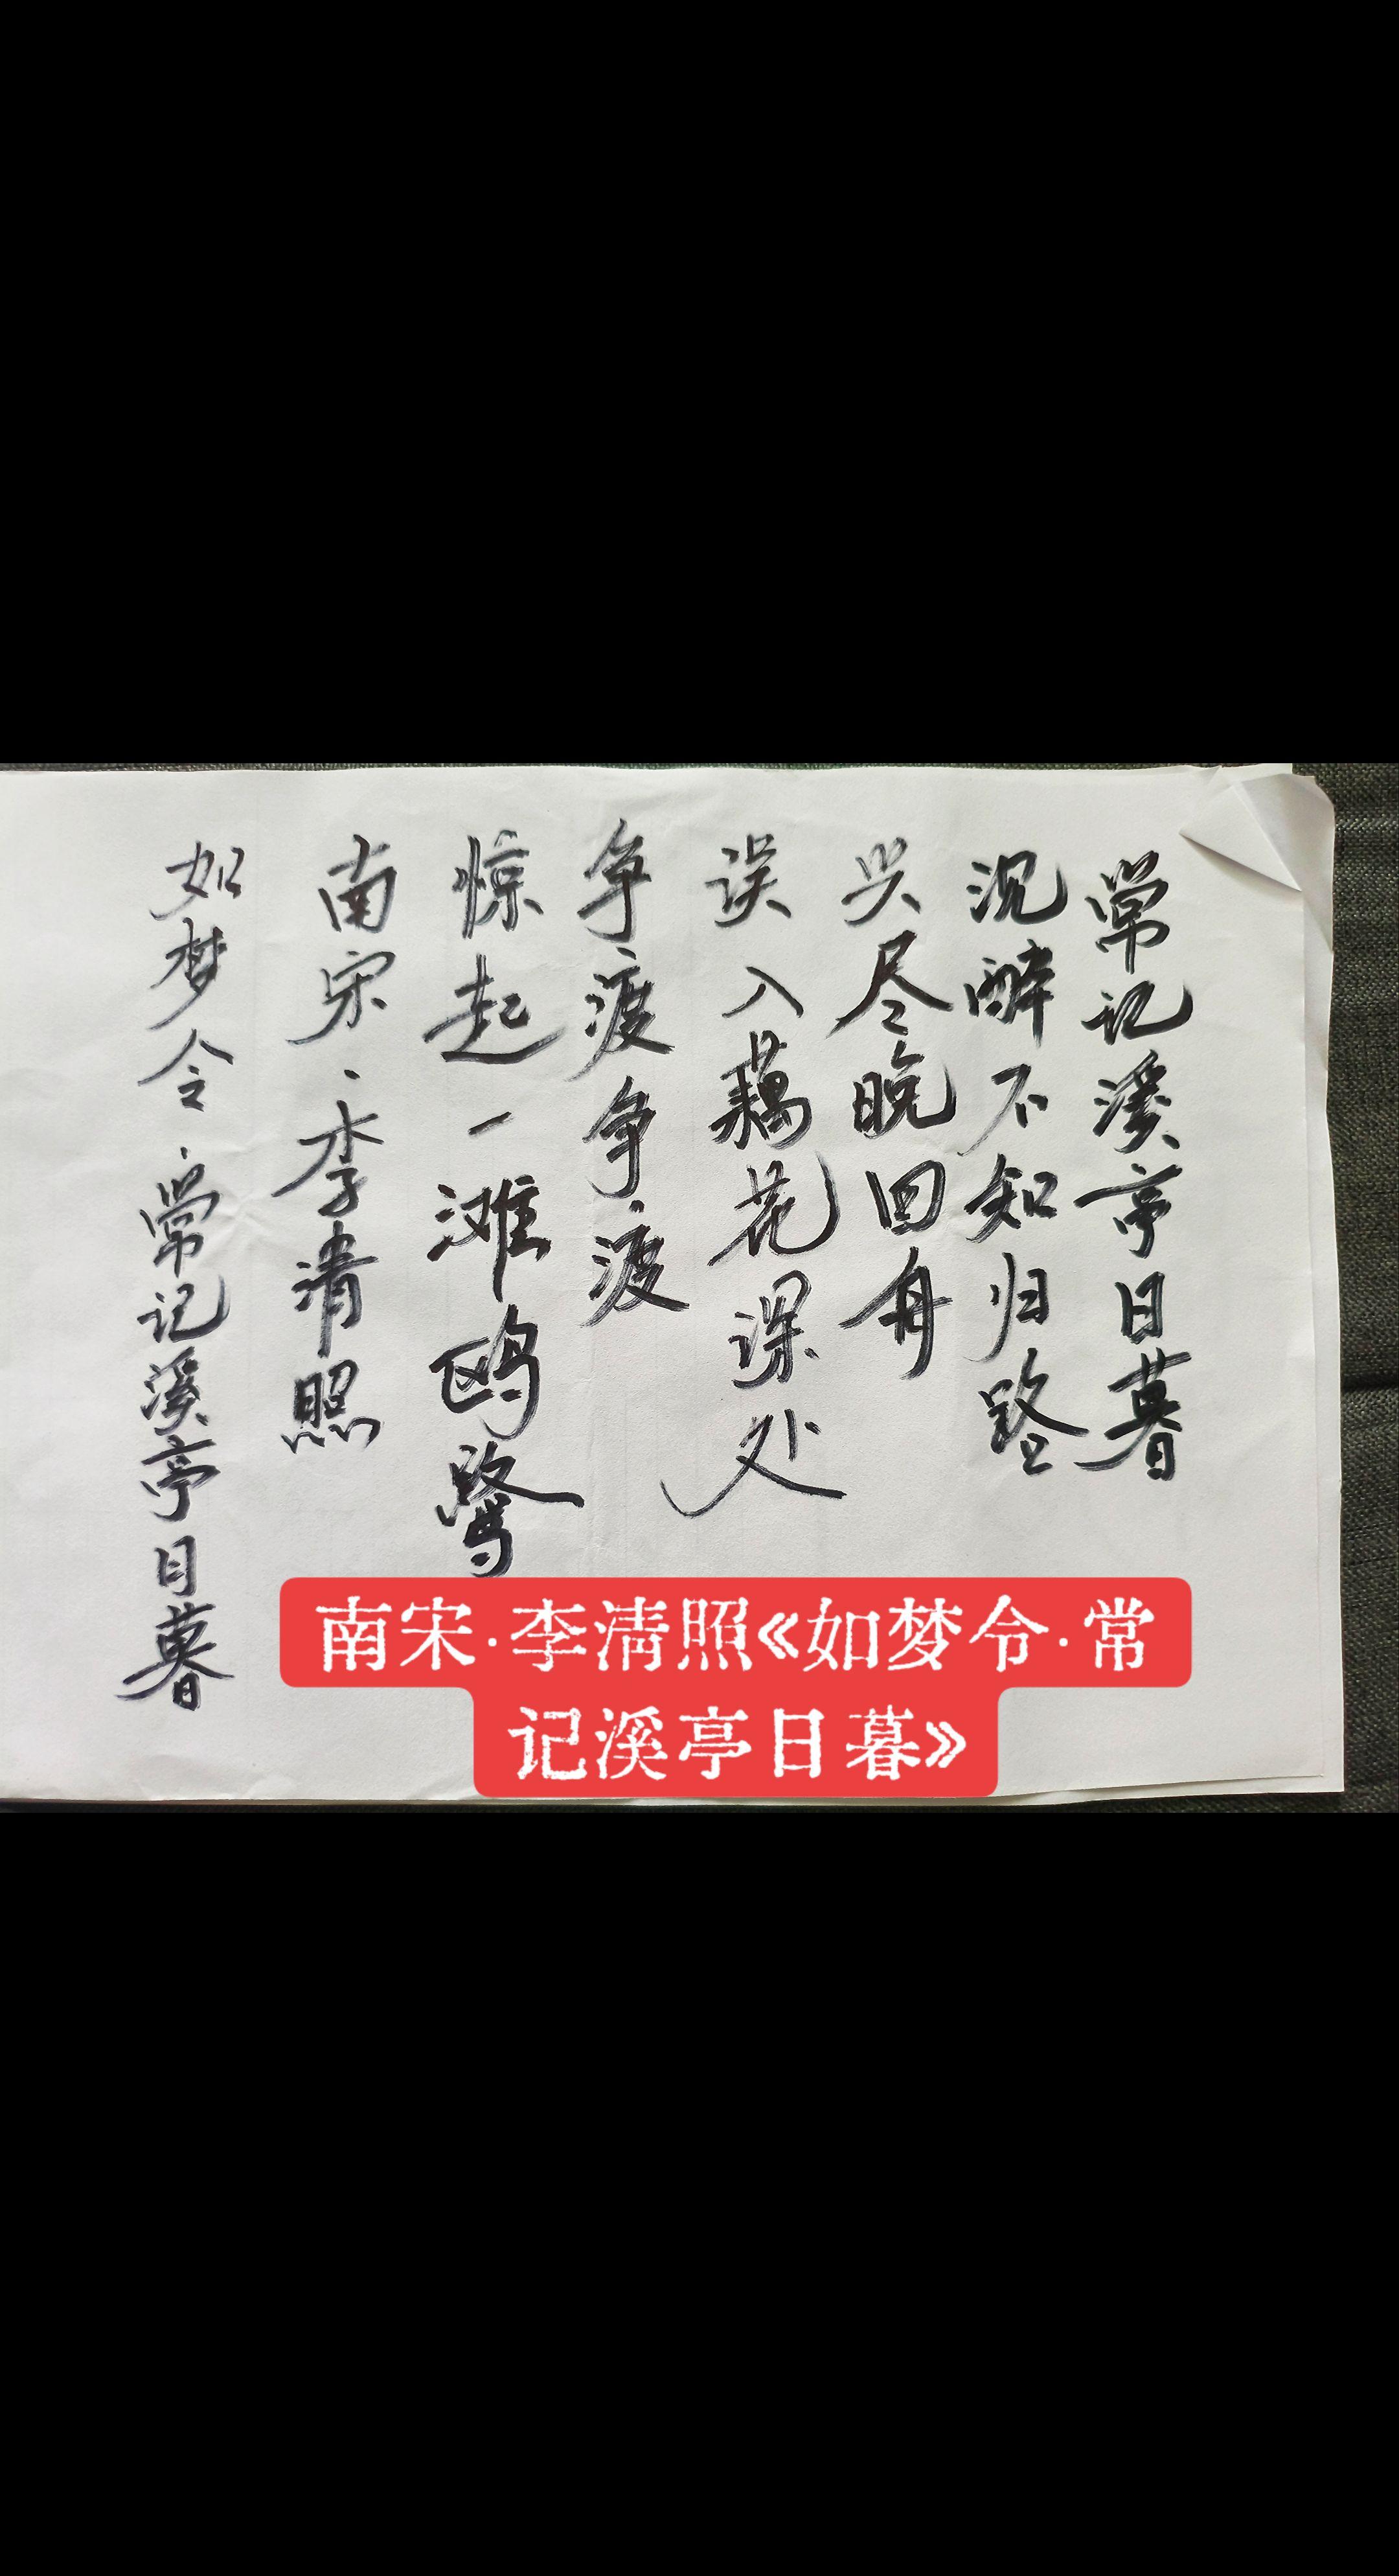 常记溪亭日暮
沉醉不知归路
兴尽晚回舟
误入藕花深处
争渡争渡
惊起一滩鸥鹭
南宋·李清照
如梦令·常记溪亭日暮
南宋·李清照《如梦令·常
记溪亭日暮》